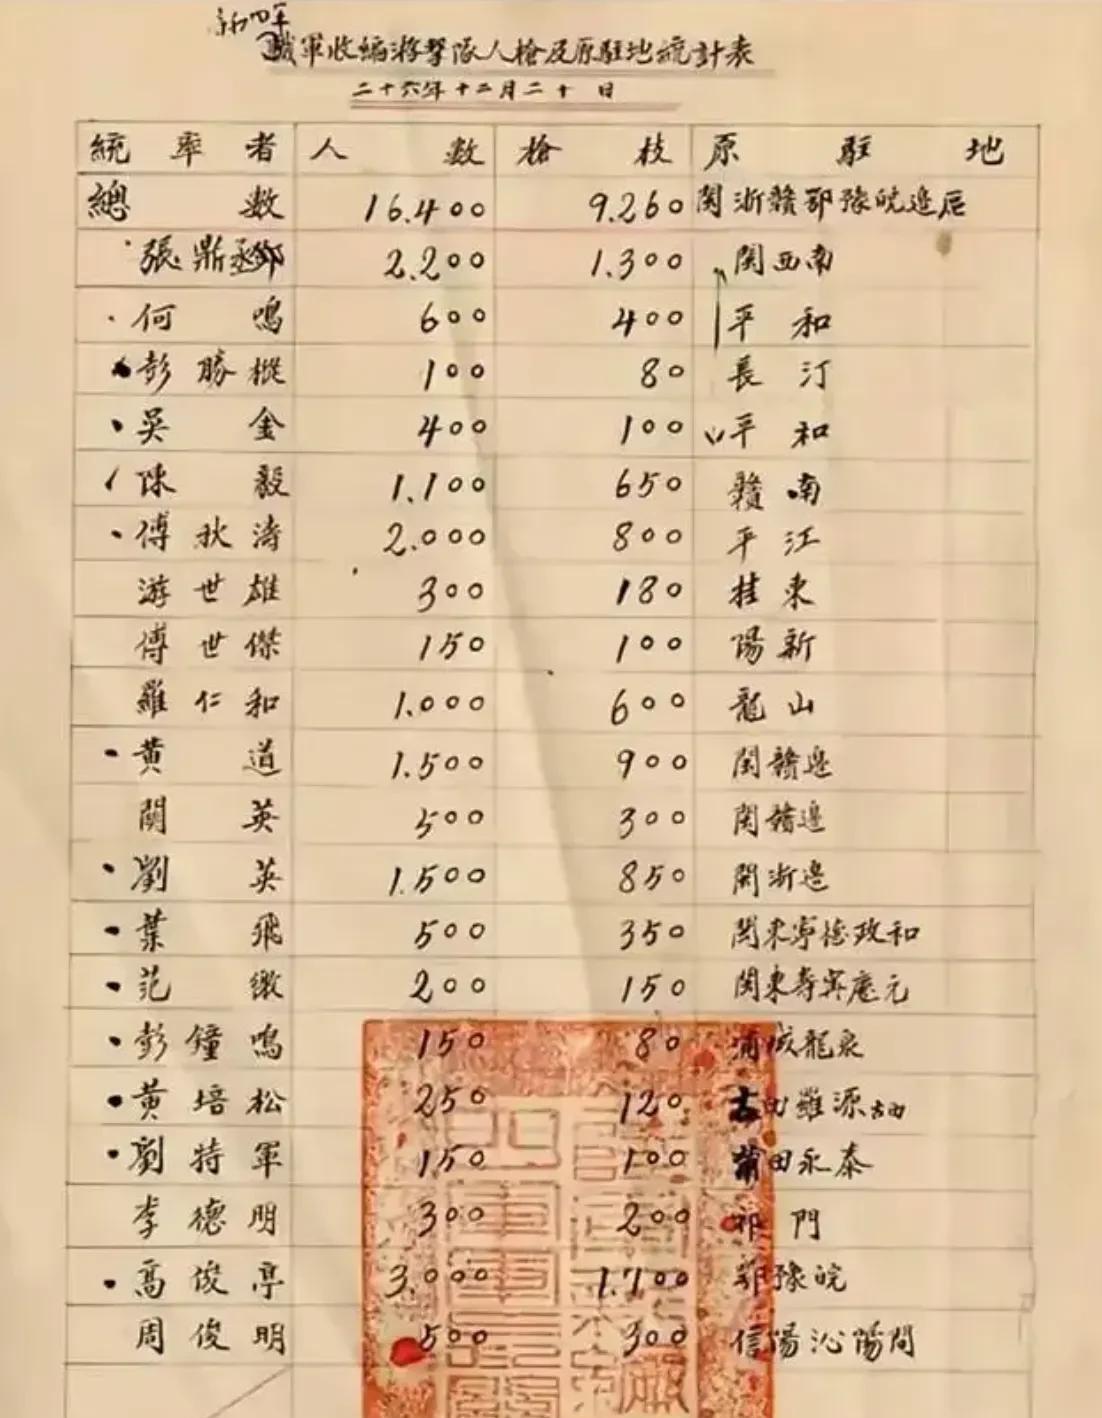 新四军
職軍收編游擊隊人槍及原駐地統計表
二十六年十二月二十日
統率者 人數 槍枝 原駐地
總數 16.400 9.260 閩浙贛鄂豫皖邊區
張鼎丞鄧 2.200 1.300 閩西南
何鳴 600 400 平和
彭勝樅 100 80 長汀
吳金 400 100 平和
陳毅 1.100 650 贛南
傅秋濤 2.000 800 平江
游世雄 300 180 桂東
傅世傑 150 100 陽新
羅仁和 1.000 600 龍山
黃道 1.500 900 閩贛邊
關英 500 300 閩贛邊
劉英 1.500 850 閩浙邊
葉飛 500 350 閩東寧德政和
范緻 200 150 閩東壽寧慶元
彭鐘鳴 150 80 浦城龍泉
黃培松 250 120 古田羅源古田
劉特軍 150 100 莆田永泰
李德明 300 200 祁門
高俊亭 3.000 1.700 鄂豫皖
周俊明 500 300 信陽沁陽間